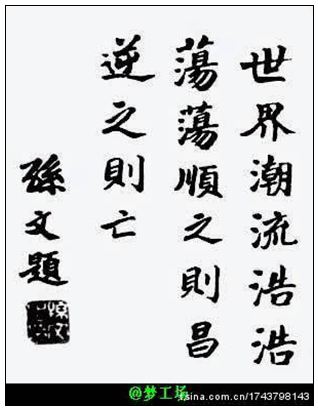 世界潮流浩浩
蕩蕩順之則昌
逆之則亡
孫文題
孫文
@梦工场
sina.com.cn/1743798143